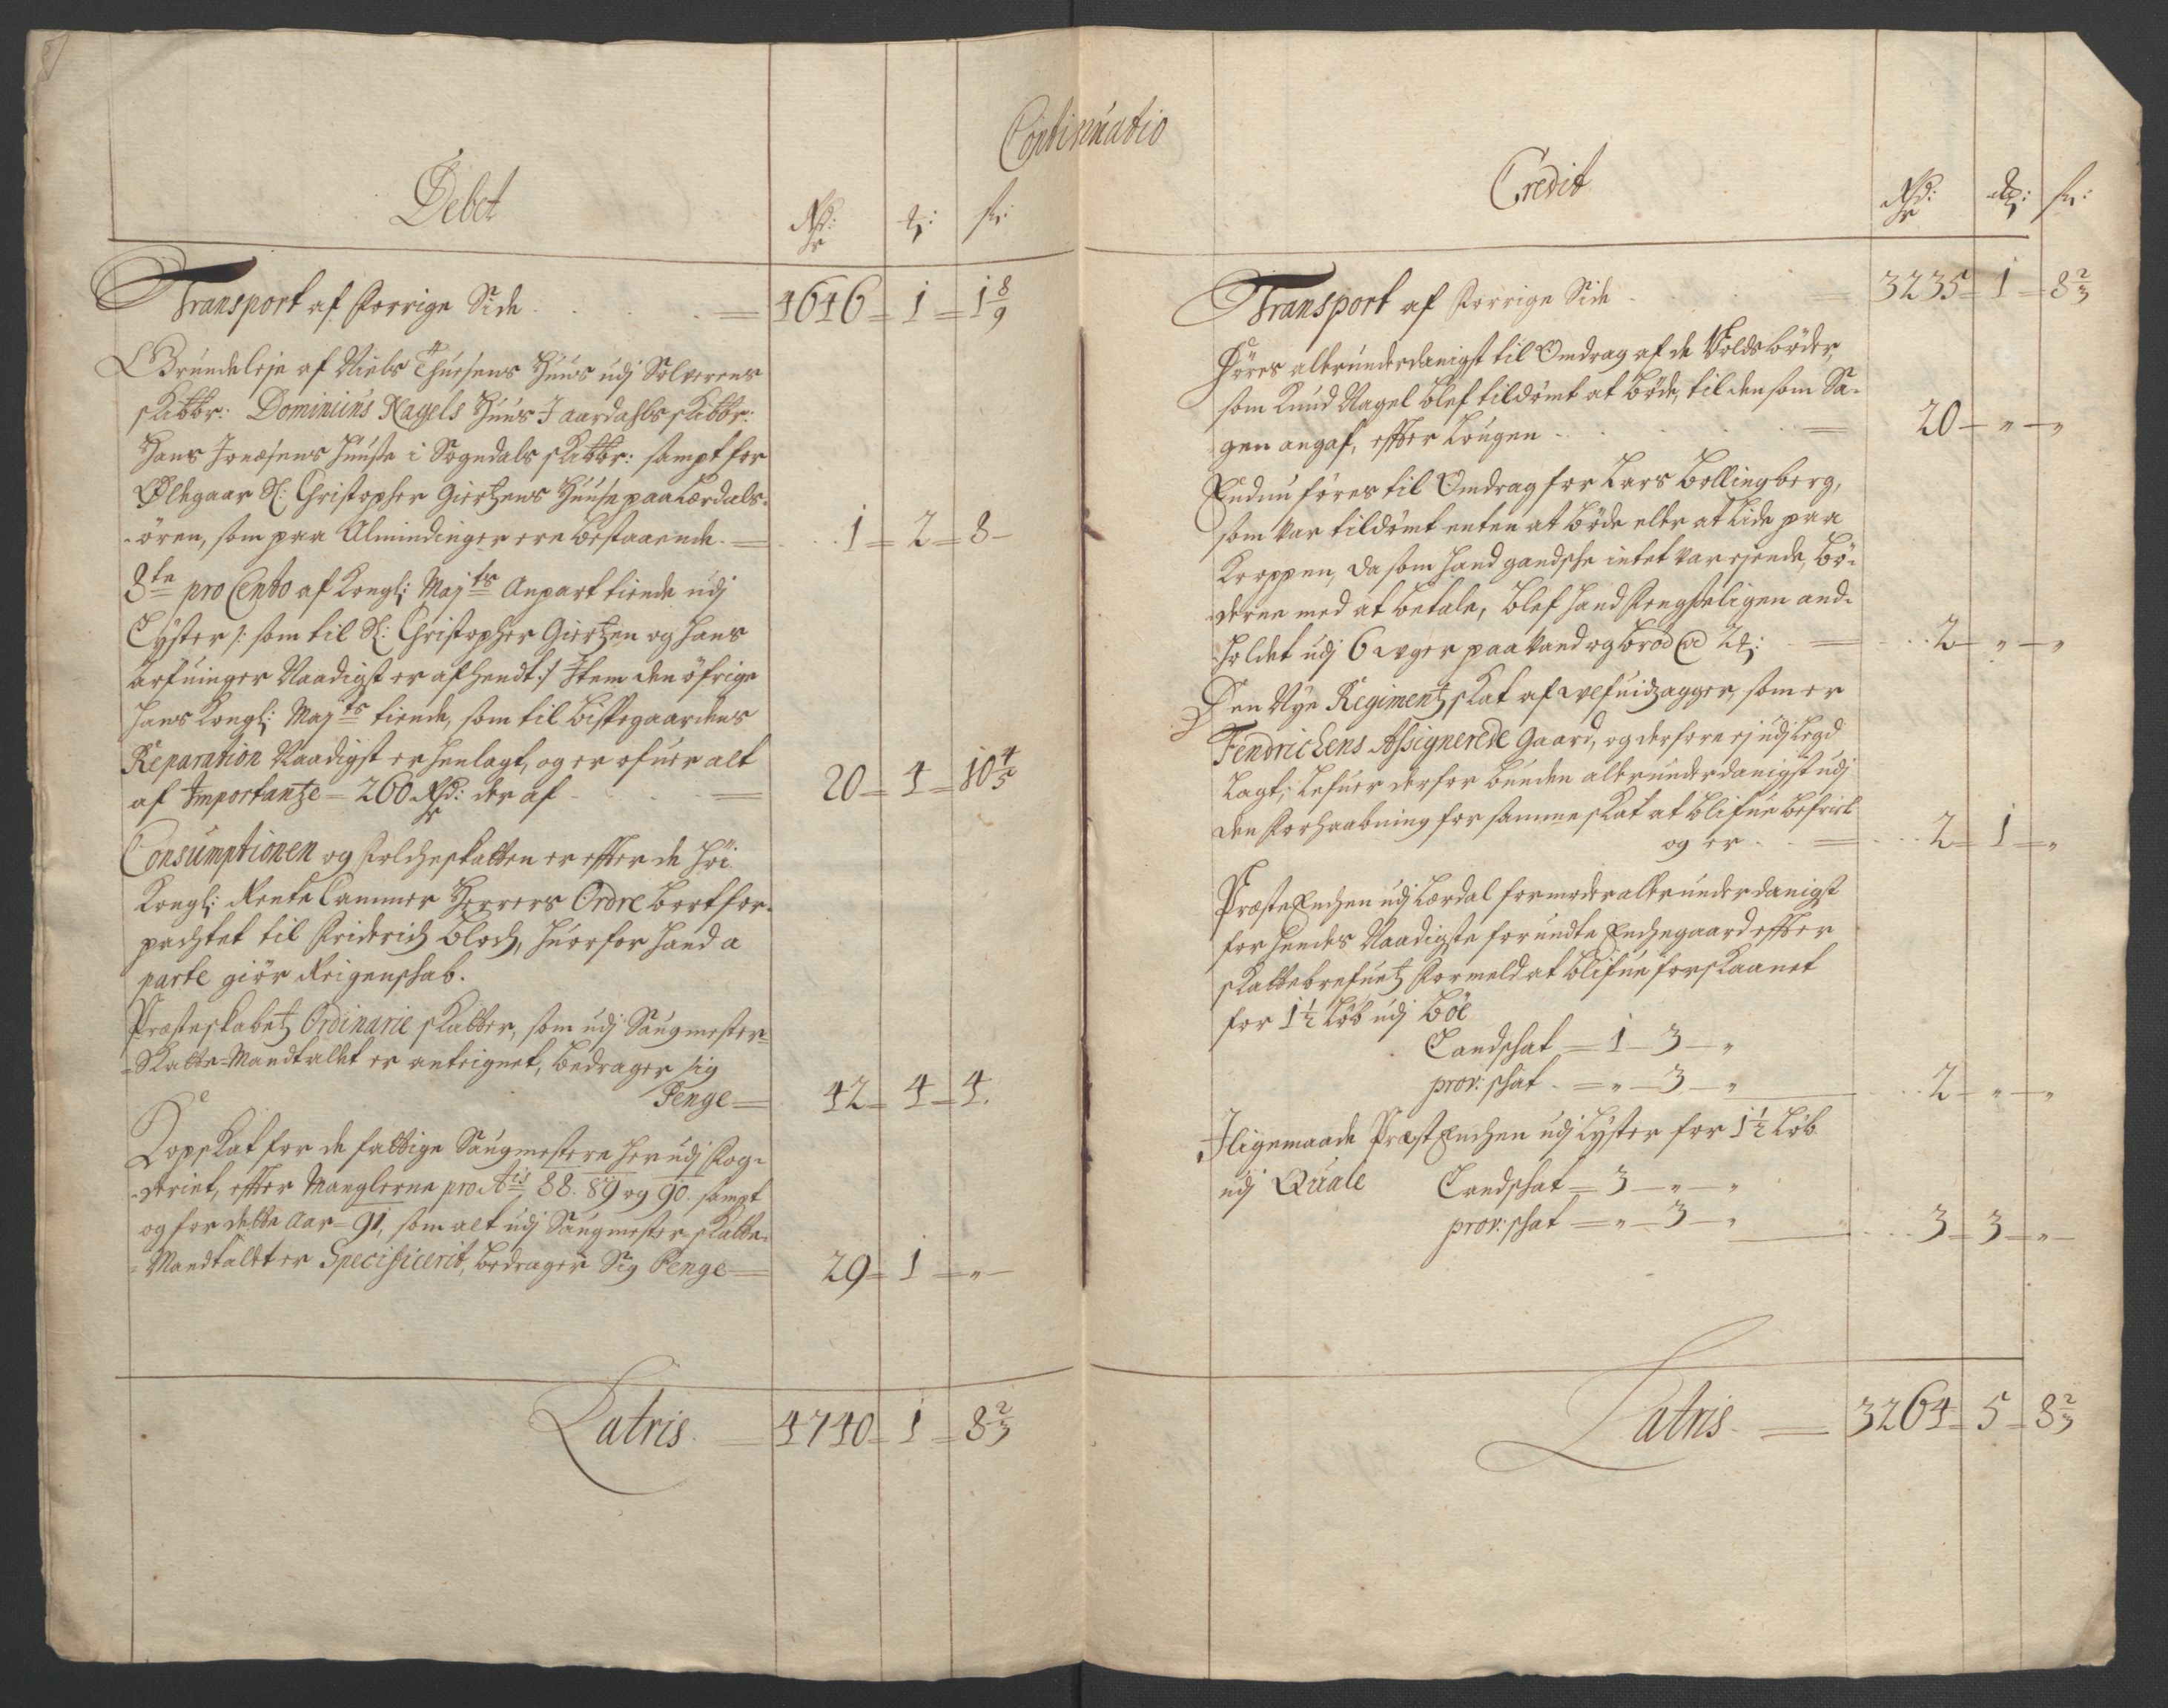 Continuatio
Debet
Rd: ꝝ: sk:
Transport af Forrige Side 4646 1 1 8/9
Grundeleje af Niels Thuesens Huus udj Solverens
skibbr: Dominicus Nagels Huus I aardahls skibbr:
Hans Jonæsens Huuse i Sogndals skibbr: sampt for
Ølegaar Sl: Christopher Giertzens Huuse paa Lærdals-
ören, som paa Almindinger ere bestaaende 1 2 8
8te pro Cento af Kongl: Majts Anpart tiende udj
Lyster /: som til Sl: Christopher Giertzen og hans
Arfuinger Naadigst er afhendt :/ Item den öfrige
Hans Kongl: Majts tiende, som til Bispegaardens
Reparation Naadigst er henlagt, og er ofuer alt
af Importantze 260 Rd: der af 20 4 10 4/5
Consumptionen og Folcheskatten er effter de Höi
Kongl: Rente Cammer Herrers Ordre bortfor-
pachtet til Friderich Bloch, huorfor hand a
parte giör Reigenschab.
Præsteskabetz Ordinarie skatter, som udj Saugmester-
Skatte-Mandtallet er anteignet, bedrager sig
Penge 42 4 4
Kopskat for de fattige Saugmestere her udj Fog-
deriet, effter Manglerne pro Ais 88. 89 og 90. sampt
og for dette Aar 91, som alt udj Saugmester skatte-
Mandtallet er Specificerit, bedrager Sig Penge 29 1 "
Latris 4740 1 8 2/3
Credit
Rd: ꝝ: sk:
Transport af Forrige Side 3235 1 8 2/3
Föres allerunderdanigst til Omdrag af de Voldsböder,
som Knud Nagel blef tildömt at böde, til den som Sa-
gen angaf, effter Lougen 20 " "
Endnu föres til Omdrag for Lars Bollingberg,
som var tildömt enten at böde eller at lide paa
Kroppen, da som hand gandske intet var ejende, bö-
derne med at betale, blef hand Fengsseligen and-
holdet udj 6 uger paa vand og bröd a 2 ꝝ: 2 " "
Den Nye Regimentz skat af Refuidzagger, som er
Fendrichens Assignerede Gaard, og derfore ej udj Legd
Lagt, Lefuer derfor bunden allerunderdanigst udj
den Forhaabning for samme skat at blifue befriet
og er 2 1 "
PræsteEnchen udj Lærdal formoder allerunderdanigst
for hendes Naadigste forundte Enchegaard effter
skattebrefuetz Formeld at blifue forskaanet
for 1 1/2 Löb udj Böe
Landschat 1 3 "
prov: schat " 3 " 2 " "
Iligemaade PræstEnchen udj Lyster for 1 1/2 Löb
udj Quale Landschat 3 " "
prov: schat " 3 " 3 3 "
Latris 3264 5 8 2/3